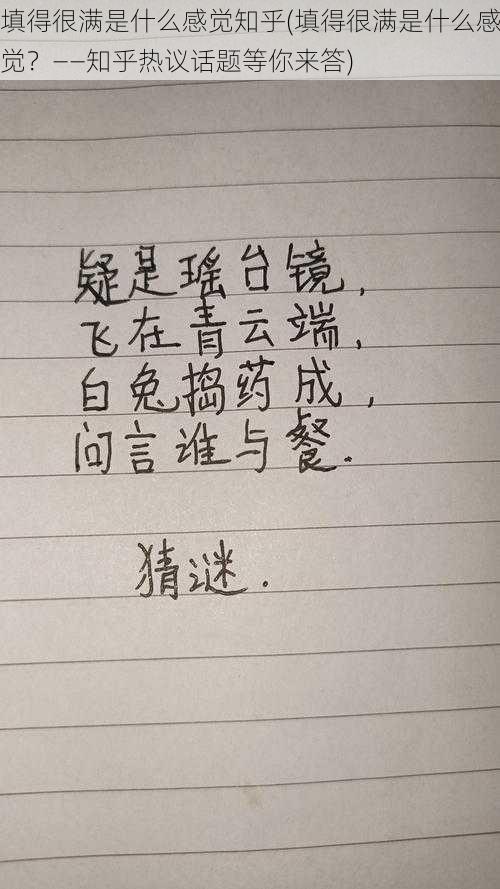 填得很满是什么感觉知乎(填得很满是什么感
觉？——知乎热议话题等你来答)
疑是瑶台镜，
飞在青云端，
白兔捣药成，
问言谁与餐.
猜谜.